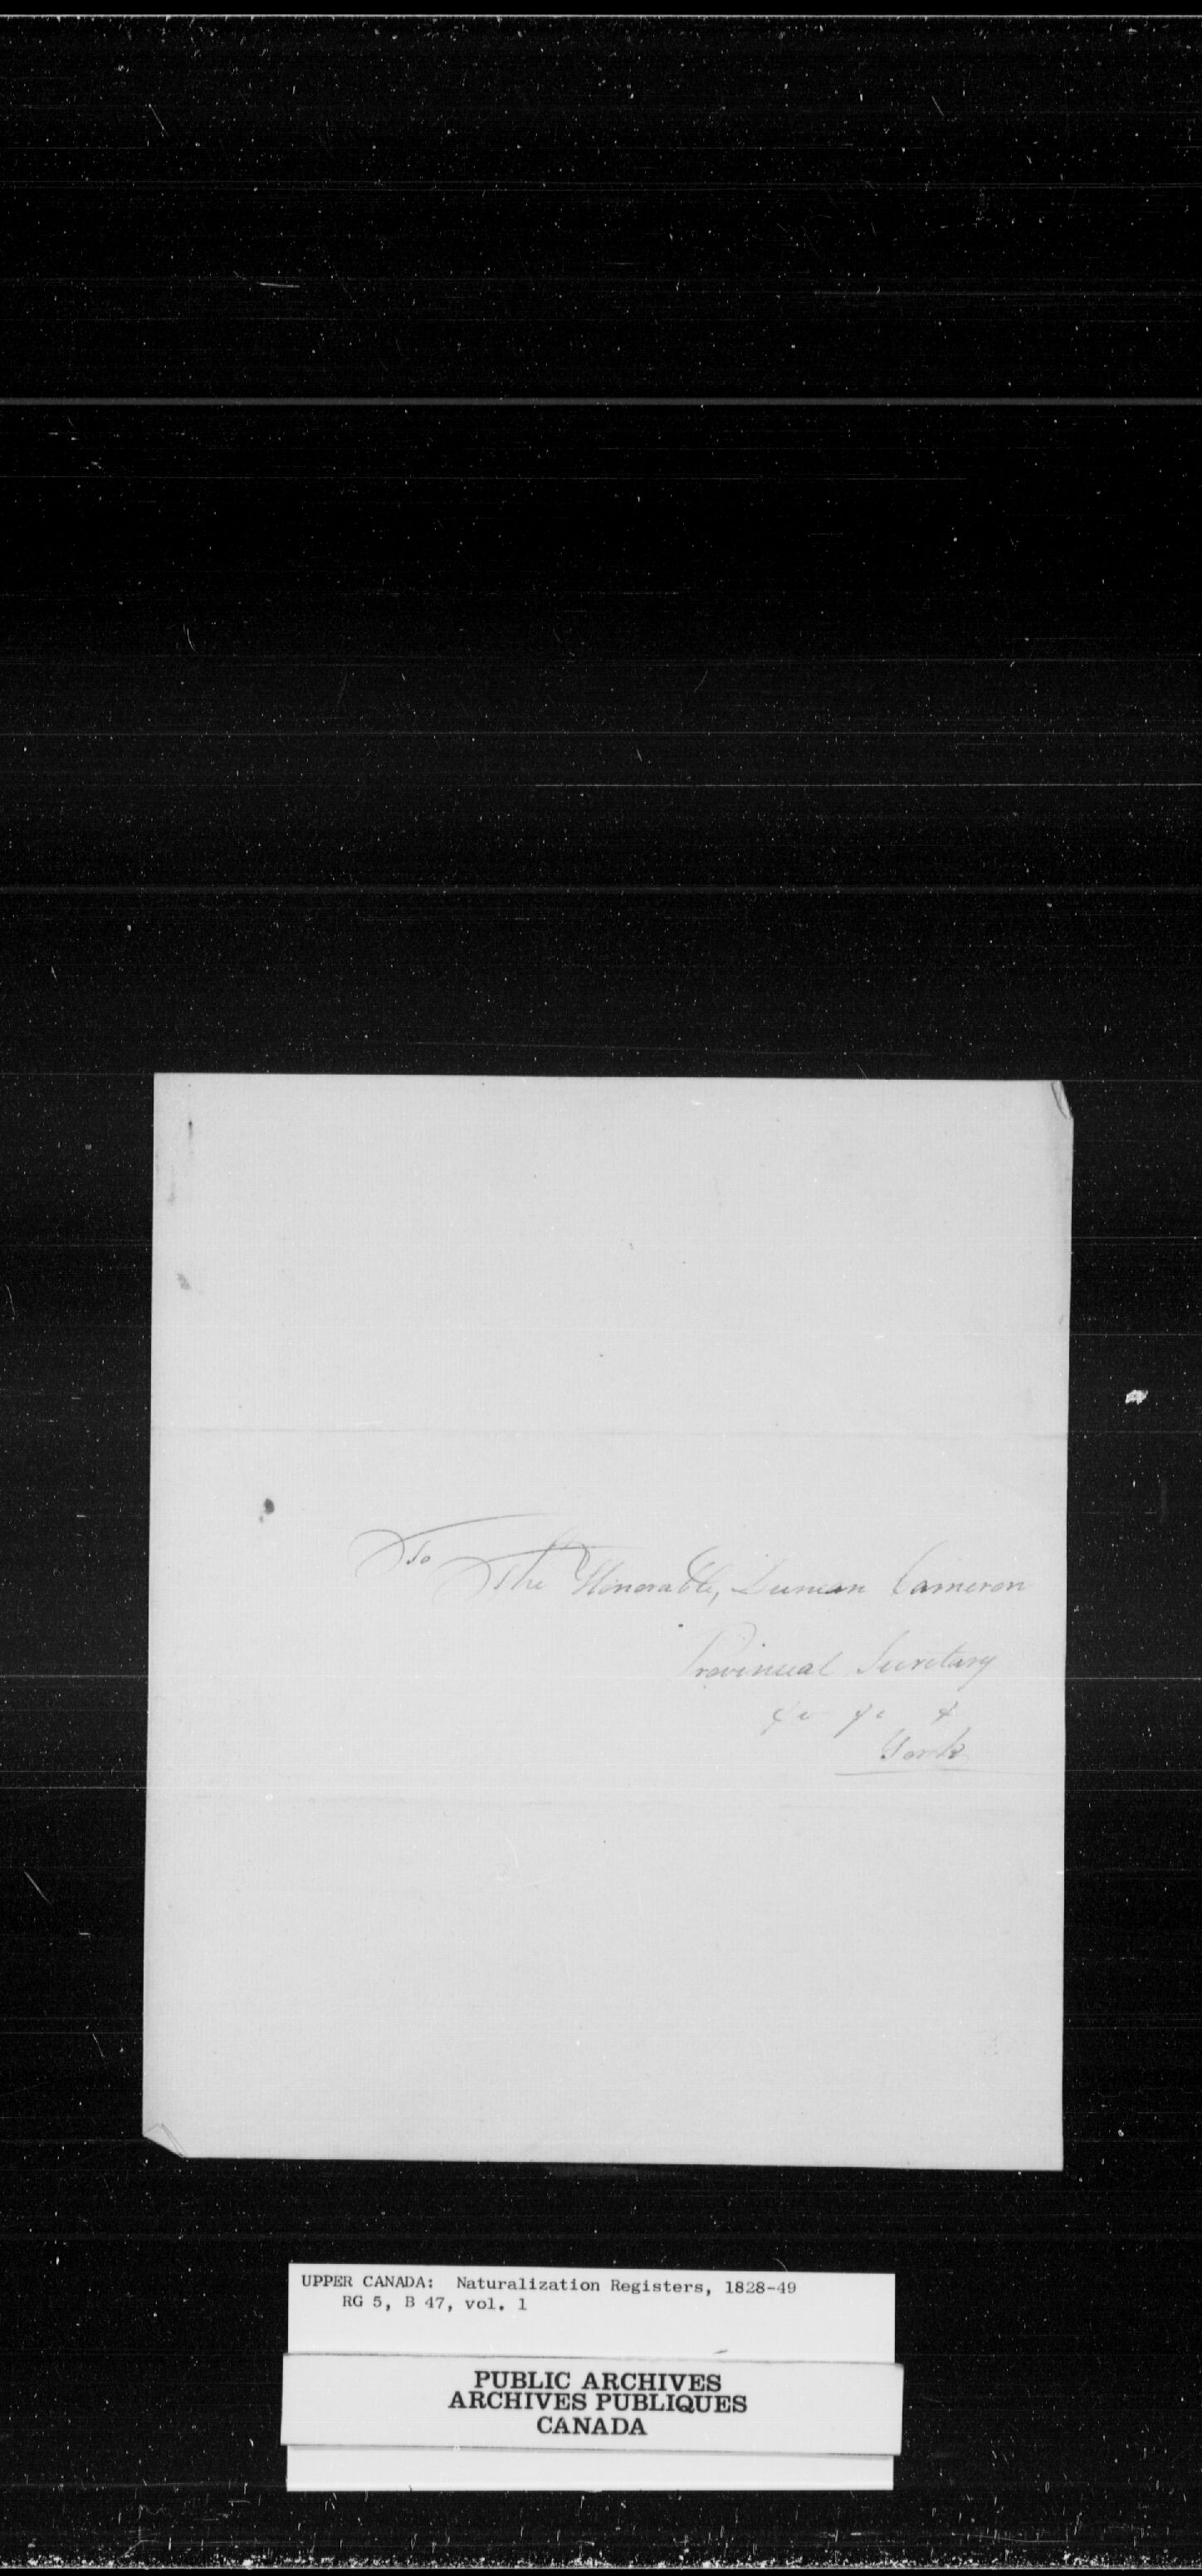 To
The Honorable, Duncan Cameron
Provincial Secretary
&c &c &
York
UPPER CANADA: Naturalization Registers, 1828-49
RG 5, B 47, vol. 1
PUBLIC ARCHIVES
ARCHIVES PUBLIQUES
CANADA